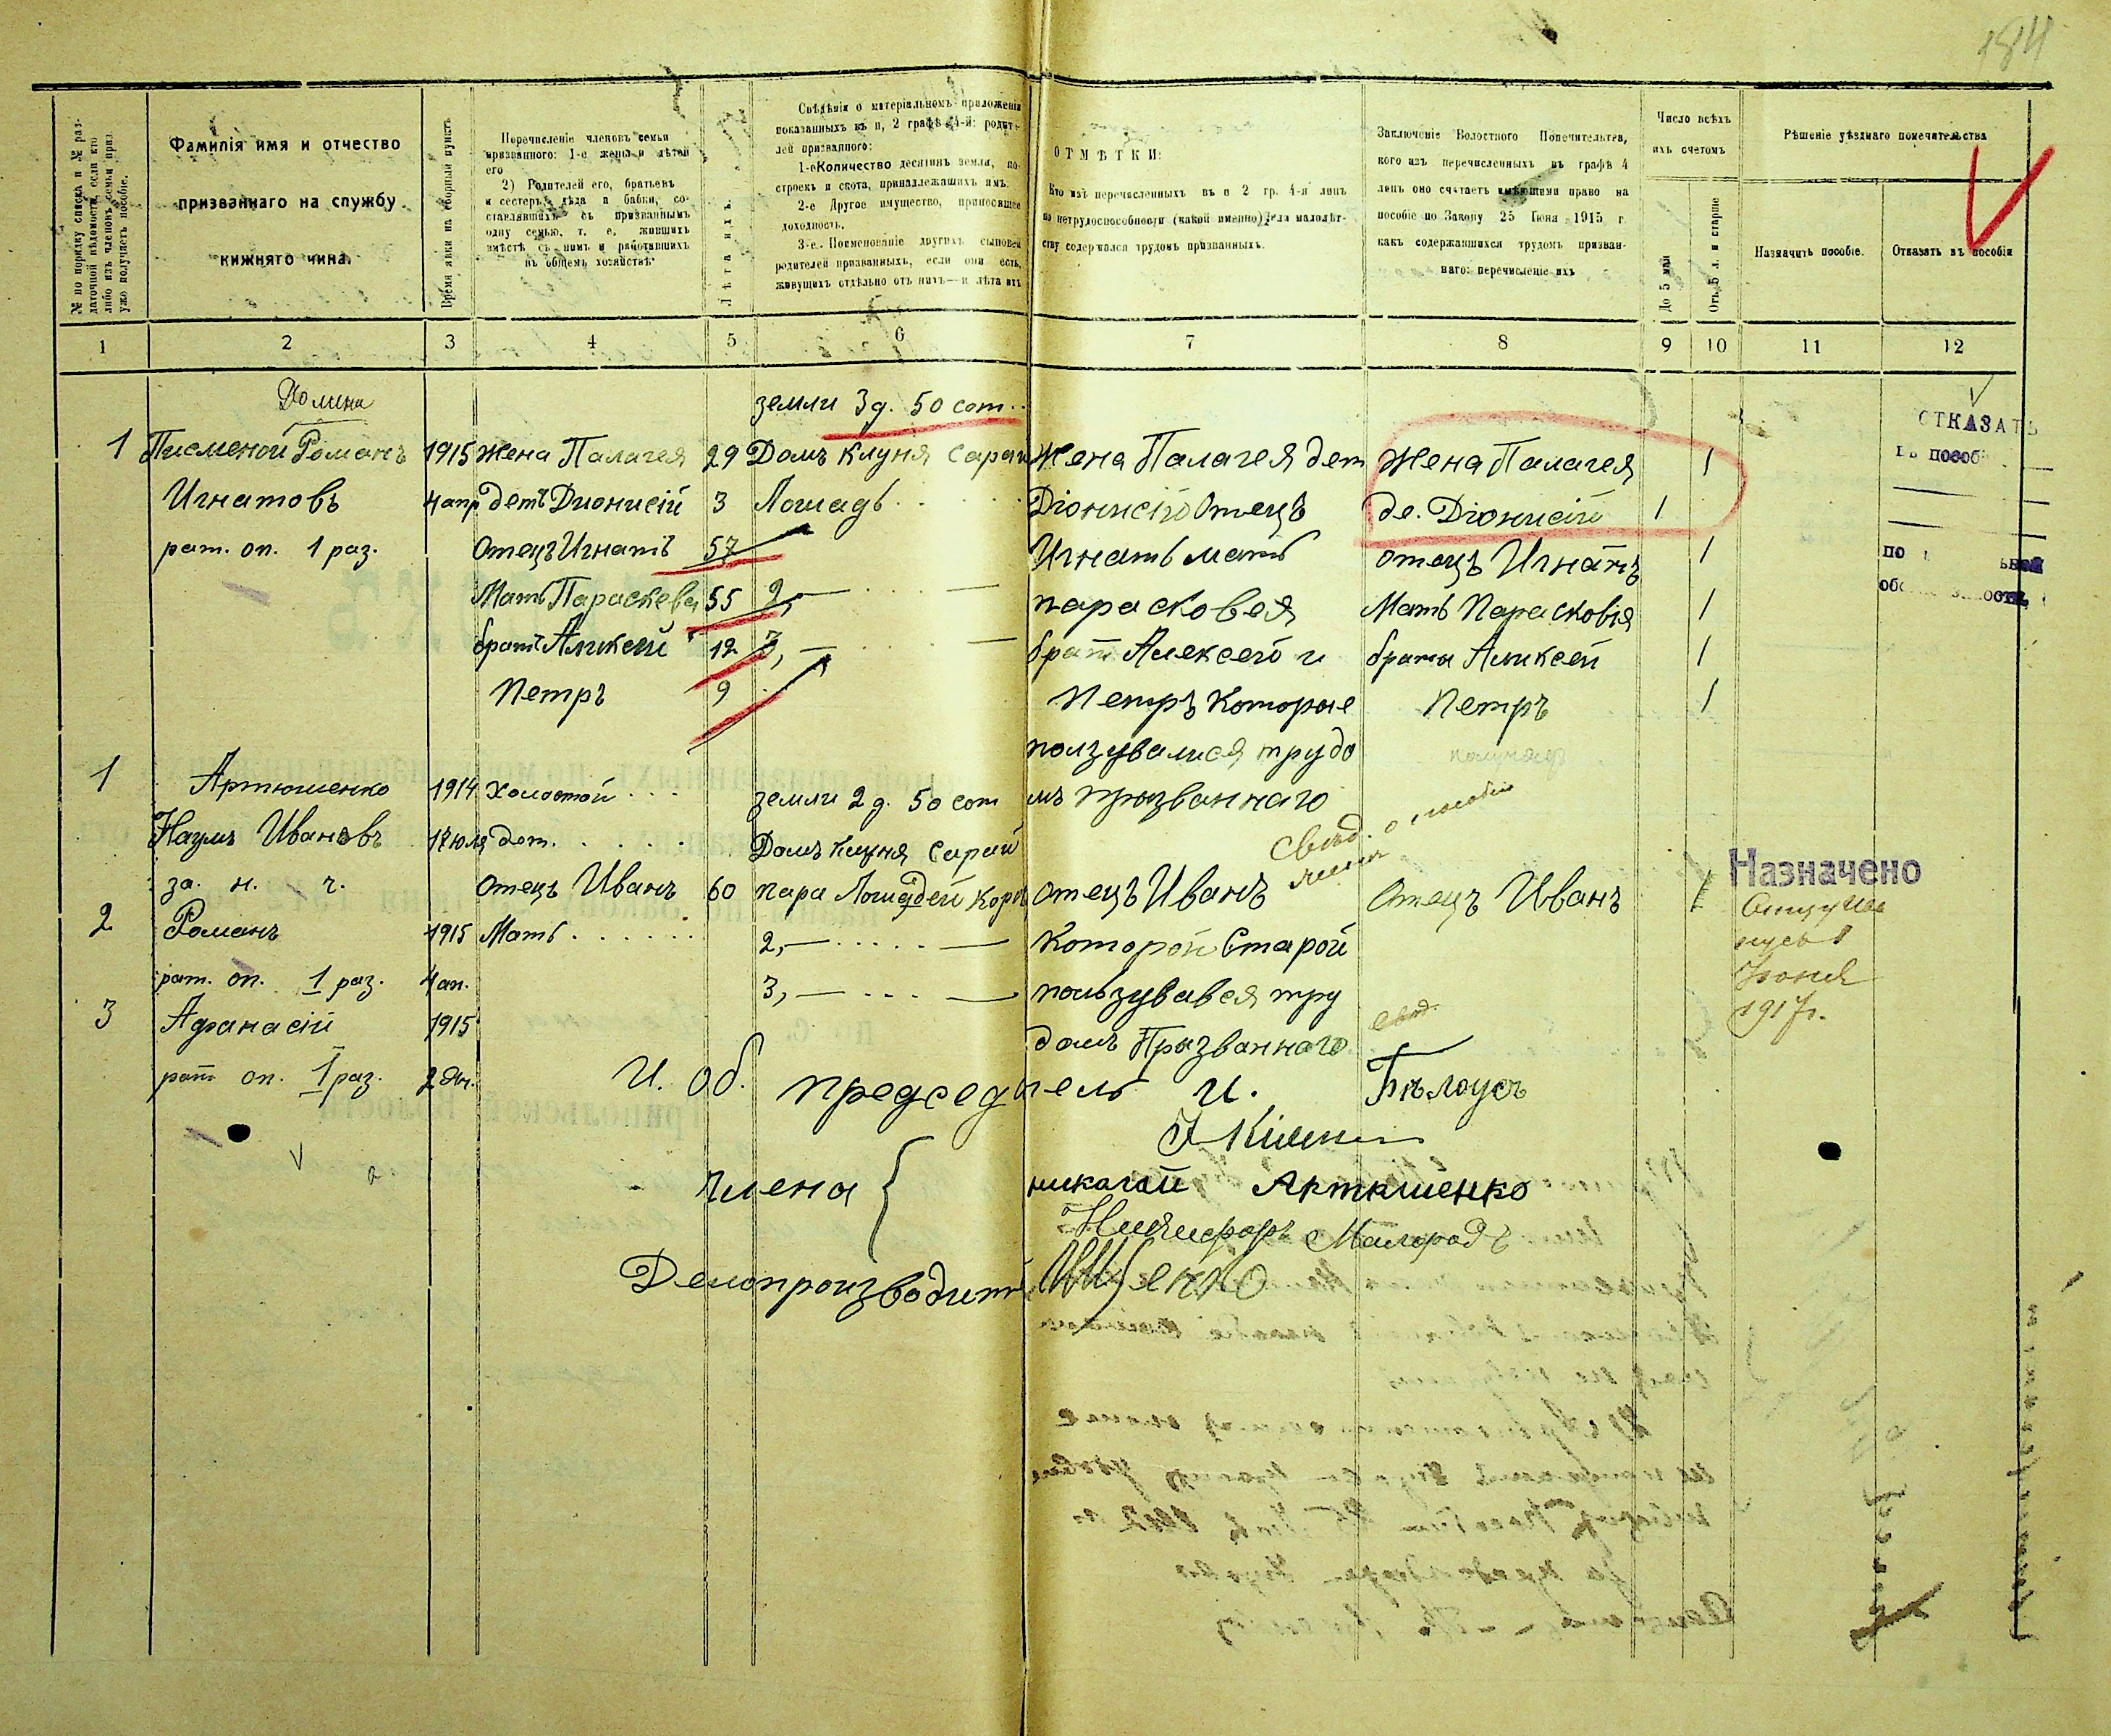 184
№ по порядку списка и № раз-
даточной вѣдомости, если кто
либо изъ членовъ семьи приз.
ужо получаетъ пособіе.
Фамилія имя и отчество
призваннаго на службу
нижняго чина.
Время явки на сборный пунктъ
Перечисленіе членовъ семьи
призваннаго: 1-е жены и дѣтей
его
2) Родителей его, братьевъ
и сестеръ, дѣда и бабки, со-
ставлявшихъ съ призваннымъ
одну семью, т. е. жившихъ
вмѣстѣ съ нимъ и работавшихъ
въ общемъ хозяйствѣ
Лѣта ихъ.
Свѣдѣнія о матеріальномъ приложеніи
показанныхъ въ п, 2 графѣ 4-й: родите-
лей призваннаго:
1-е Количество десятинъ земли, по-
строекъ и скота, принадлежащихъ имъ.
2-е Другое имущество, приносящее
доходность.
3-е. Поименованіе другихъ сыновей
родителей призванныхъ, если они есть,
живущихъ отдѣльно отъ нихъ—и лѣта ихъ
ОТМѢТКИ:
Кто изъ перечисленныхъ въ п 2 гр. 4-й лицъ
по нетрудоспособности (какой именно) или малолѣт-
ству содержался трудомъ призванныхъ.
Заключеніе Волостного Попечительтва,
кого изъ перечисленныхъ въ графѣ 4
лицъ оно считаетъ имѣющими право на
пособіе по Закону 25 Іюня 1915 г.
какъ содержавшихся трудомъ призван-
наго: перечисленіе ихъ
Число всѣхъ
ихъ счетомъ
До 5 мѣт
Отъ 5 л. и старше
Рѣшеніе уѣзднаго попечительства
Назначить пособіе.
Отказать въ пособіи
1 2 3 4 5 6 7 8 9 10 11 12
Долина
земли 3 д. 50 сот.
1 Писменой Романъ 1915 Жена Палагея 29 Домъ Клуня Сарай Жена Палагея дет Жена Палагея 1
ОТКАЗАТЬ
въ пособ
Игнатовъ 4 апр детъ Дионисій 3 Лошадь Діонисій Отецъ де. Діонисій 1
рат. оп. 1 раз. Отецъ Игнатъ 57 Игнатъ мать отецъ Игнатъ 1
Мать Параскева 55 2, — — парасковея Мать Парасковія 1
братъ Аликсей 12 3, — — брат Алексей и брата Аликсей 1
Петръ 9 Петръ Которые Петръ 1
ползувалися трудо
1 Артюшенко 1914 Холостой земли 2 д. 50 сот мъ призваннаго
Наумъ Ивановъ 17 юля дет. Домъ Клуня Сарай
Свѣд. о пособіи
за. н. ч. Отецъ Иванъ 60 пара Лошадей Коро отецъ Иванъ Отецъ Иванъ 1 Назначено
2 Романъ 1915 Мать 2, — — Которой Старой
рат. оп. 1 раз. 4 ап. 3, — — пользувався тру
1917 г.
3 Афанасій 1915 домъ Призваннаго
рат оп. 1 раз.
И. об. председатель И. Бѣлоусъ
Члена { николай Артюшенко
Никифоръ
Делопроизводитель